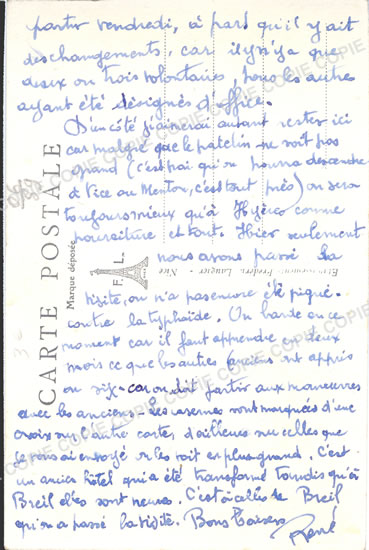 partir vendredi, à part qu'il y ait
des changements, car il y n'y a que
deux ou trois volontaires, tous les autres
ayant été désignés d'office.
D'un côté j'aimerai autant rester ici
car malgré que le patelin ne soit pas
grand (c'est vrai qu'on pourra descendre
à Nice ou Menton, c'est tout près) on sera
toujours mieux qu'à Hyères comme
nourriture et tout. Hier seulement
nous avons passé la
visite, on n'a pas encore été piqué
contre la typhoïde. On barde en ce
moment car il faut apprendre en deux
mois ce que les autres (anciens) ont appris
en six - car on doit partir aux manœuvres
avec les anciens - les casernes sont marquées d'une
croix sur l'autre carte, d'ailleurs sur celles que
je vous ai envoyé on les voit en plus grand. C'est
un ancien hôtel qui a été transformé tandis qu'à
Breil elles sont neuves. C'est à celles de Breil
qu'on a passé la visite. Bons baisers
René
CARTE POSTALE
Marque déposée
F. L.
Nice
COPIE COPIE COPIE COPIE